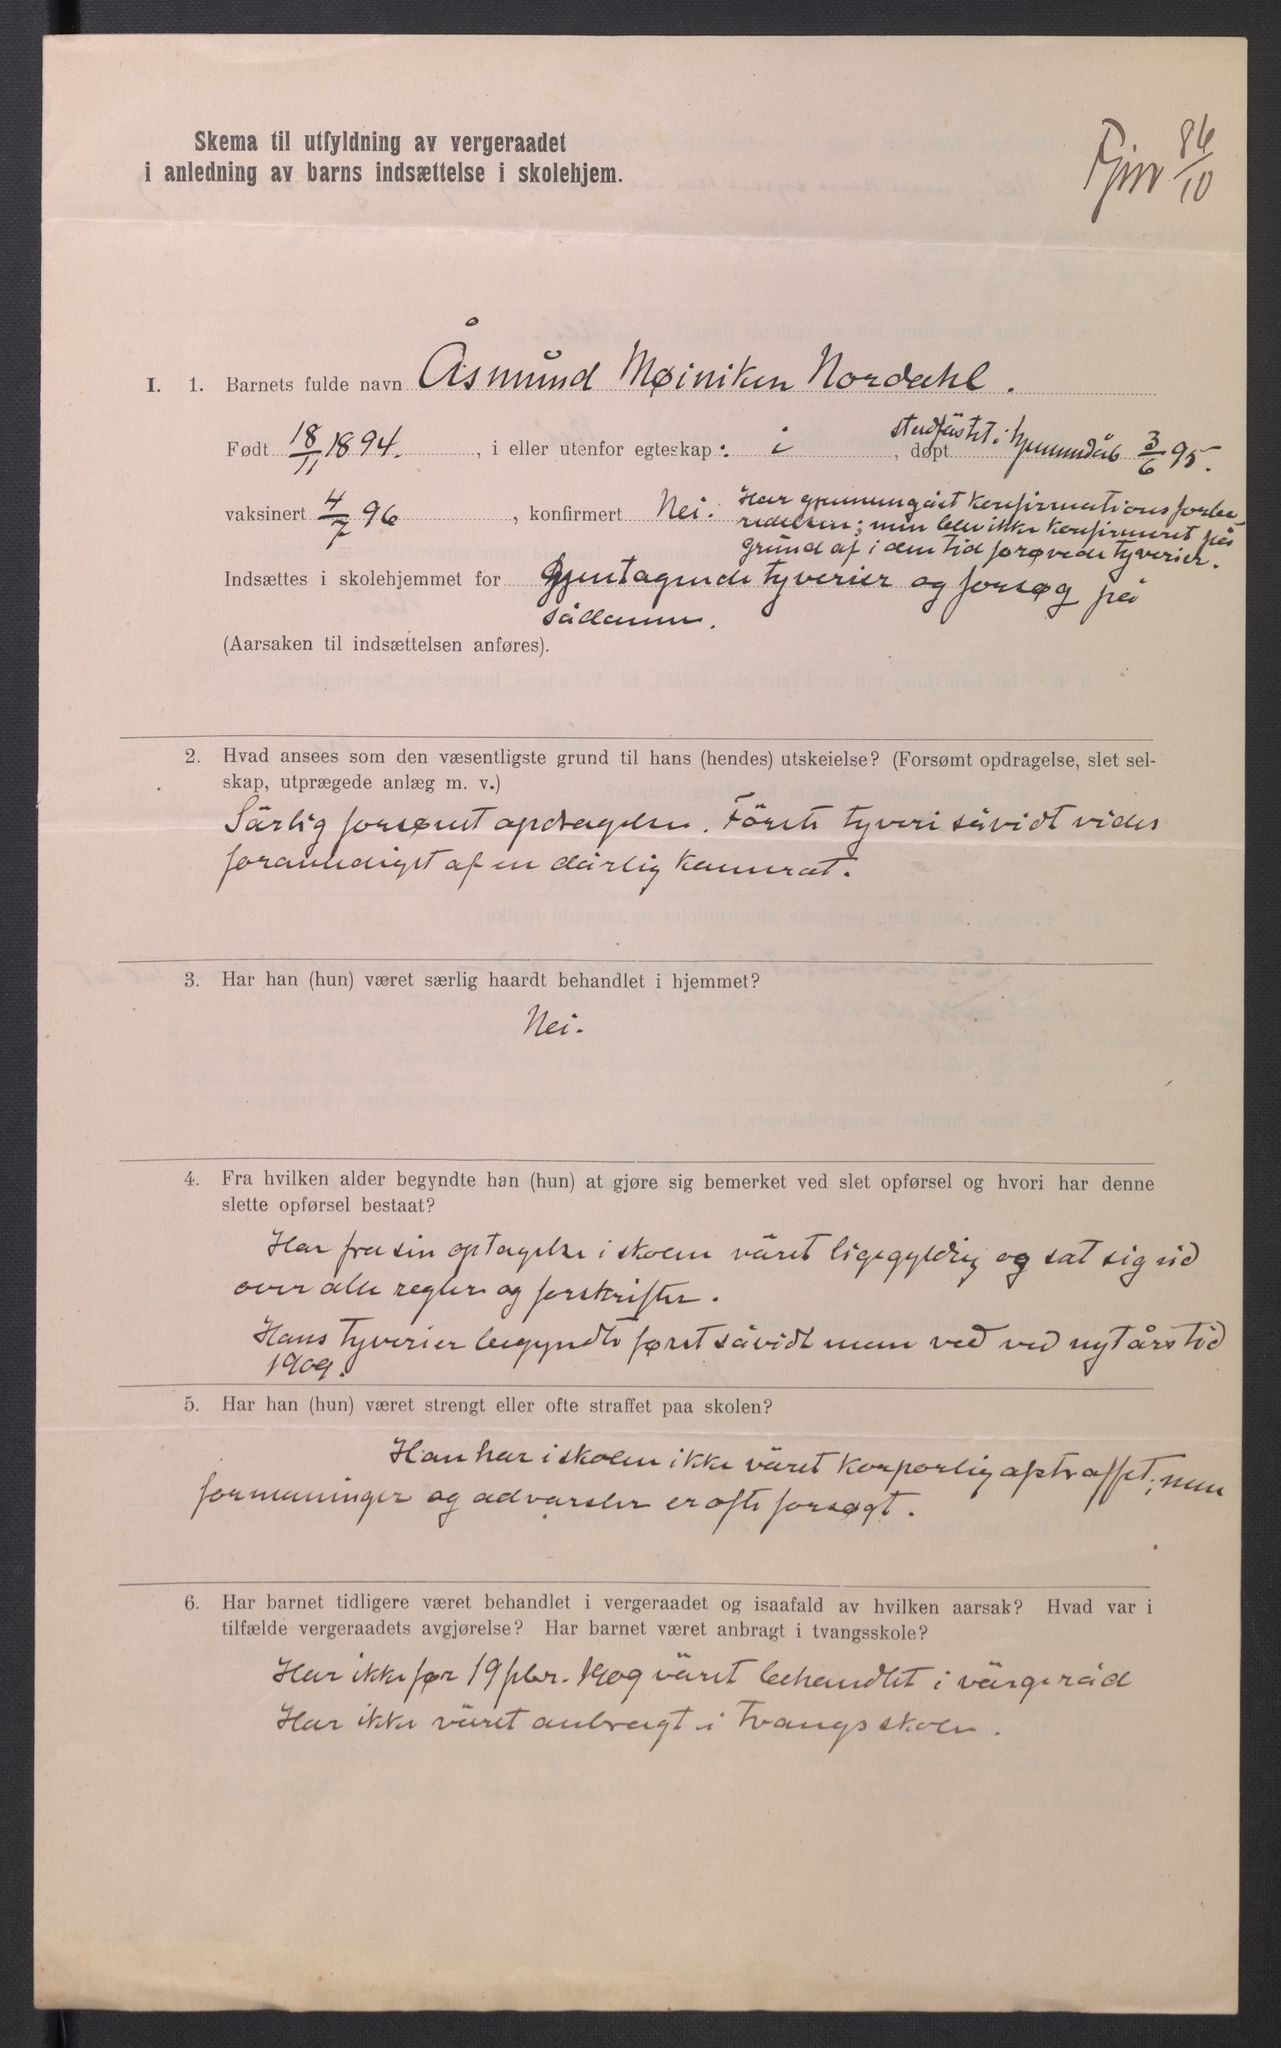 Skema til utfyldning av vergeraadet
i anledning av barns indsættelse i skolehjem.
86/10
I. 1. Barnets fulde navn Åsmund Møiniken Nordahl.
Født 18/11 1894., i eller utenfor egteskap: i, døpt stadfästet i hjemmedåb 3/6 95.
vaksinert 4/7 96, konfirmert Nei. Har gjennemgåat konfirmationsforbe-
redelsen; men blev ikke konfirmeret på
grund af i den tid prøvede tyverier.
Indsættes i skolehjemmet for Gjentagende tyverier og forsøg på
sådanne.
(Aarsaken til indsættelsen anføres).
2. Hvad ansees som den væsentligste grund til hans (hendes) utskeielse? (Forsømt opdragelse, slet sel-
skap, utprægede anlæg m. v.)
Särlig forsømt opdragelse. Første tyveri såvidt vides
foranlediget af en dårlig kamerat.
3. Har han (hun) været særlig haardt behandlet i hjemmet?
Nei.
4. Fra hvilken alder begyndte han (hun) at gjøre sig bemerket ved slet opførsel og hvori har denne
slette opførsel bestaat?
Har fra sin optagelse i skolen väret ligegyldig og sat sig ud
over alle regler og forskrifter.
Hans tyverier begyndte først såvidt man ved ved nytårstid
1909.
5. Har han (hun) været strengt eller ofte straffet paa skolen?
Han har i skolen ikke väret korporlig afstraffet; men
formaninger og advarsler er ofte forsøgt.
6. Har barnet tidligere været behandlet i vergeraadet og isaafald av hvilken aarsak? Hvad var i
tilfælde vergeraadets avgjørelse? Har barnet været anbragt i tvangsskole?
Har ikke før 19 febr. 1909 väret behandlet i värgeråd
Har ikke väret anbragt i tvangsskolen.